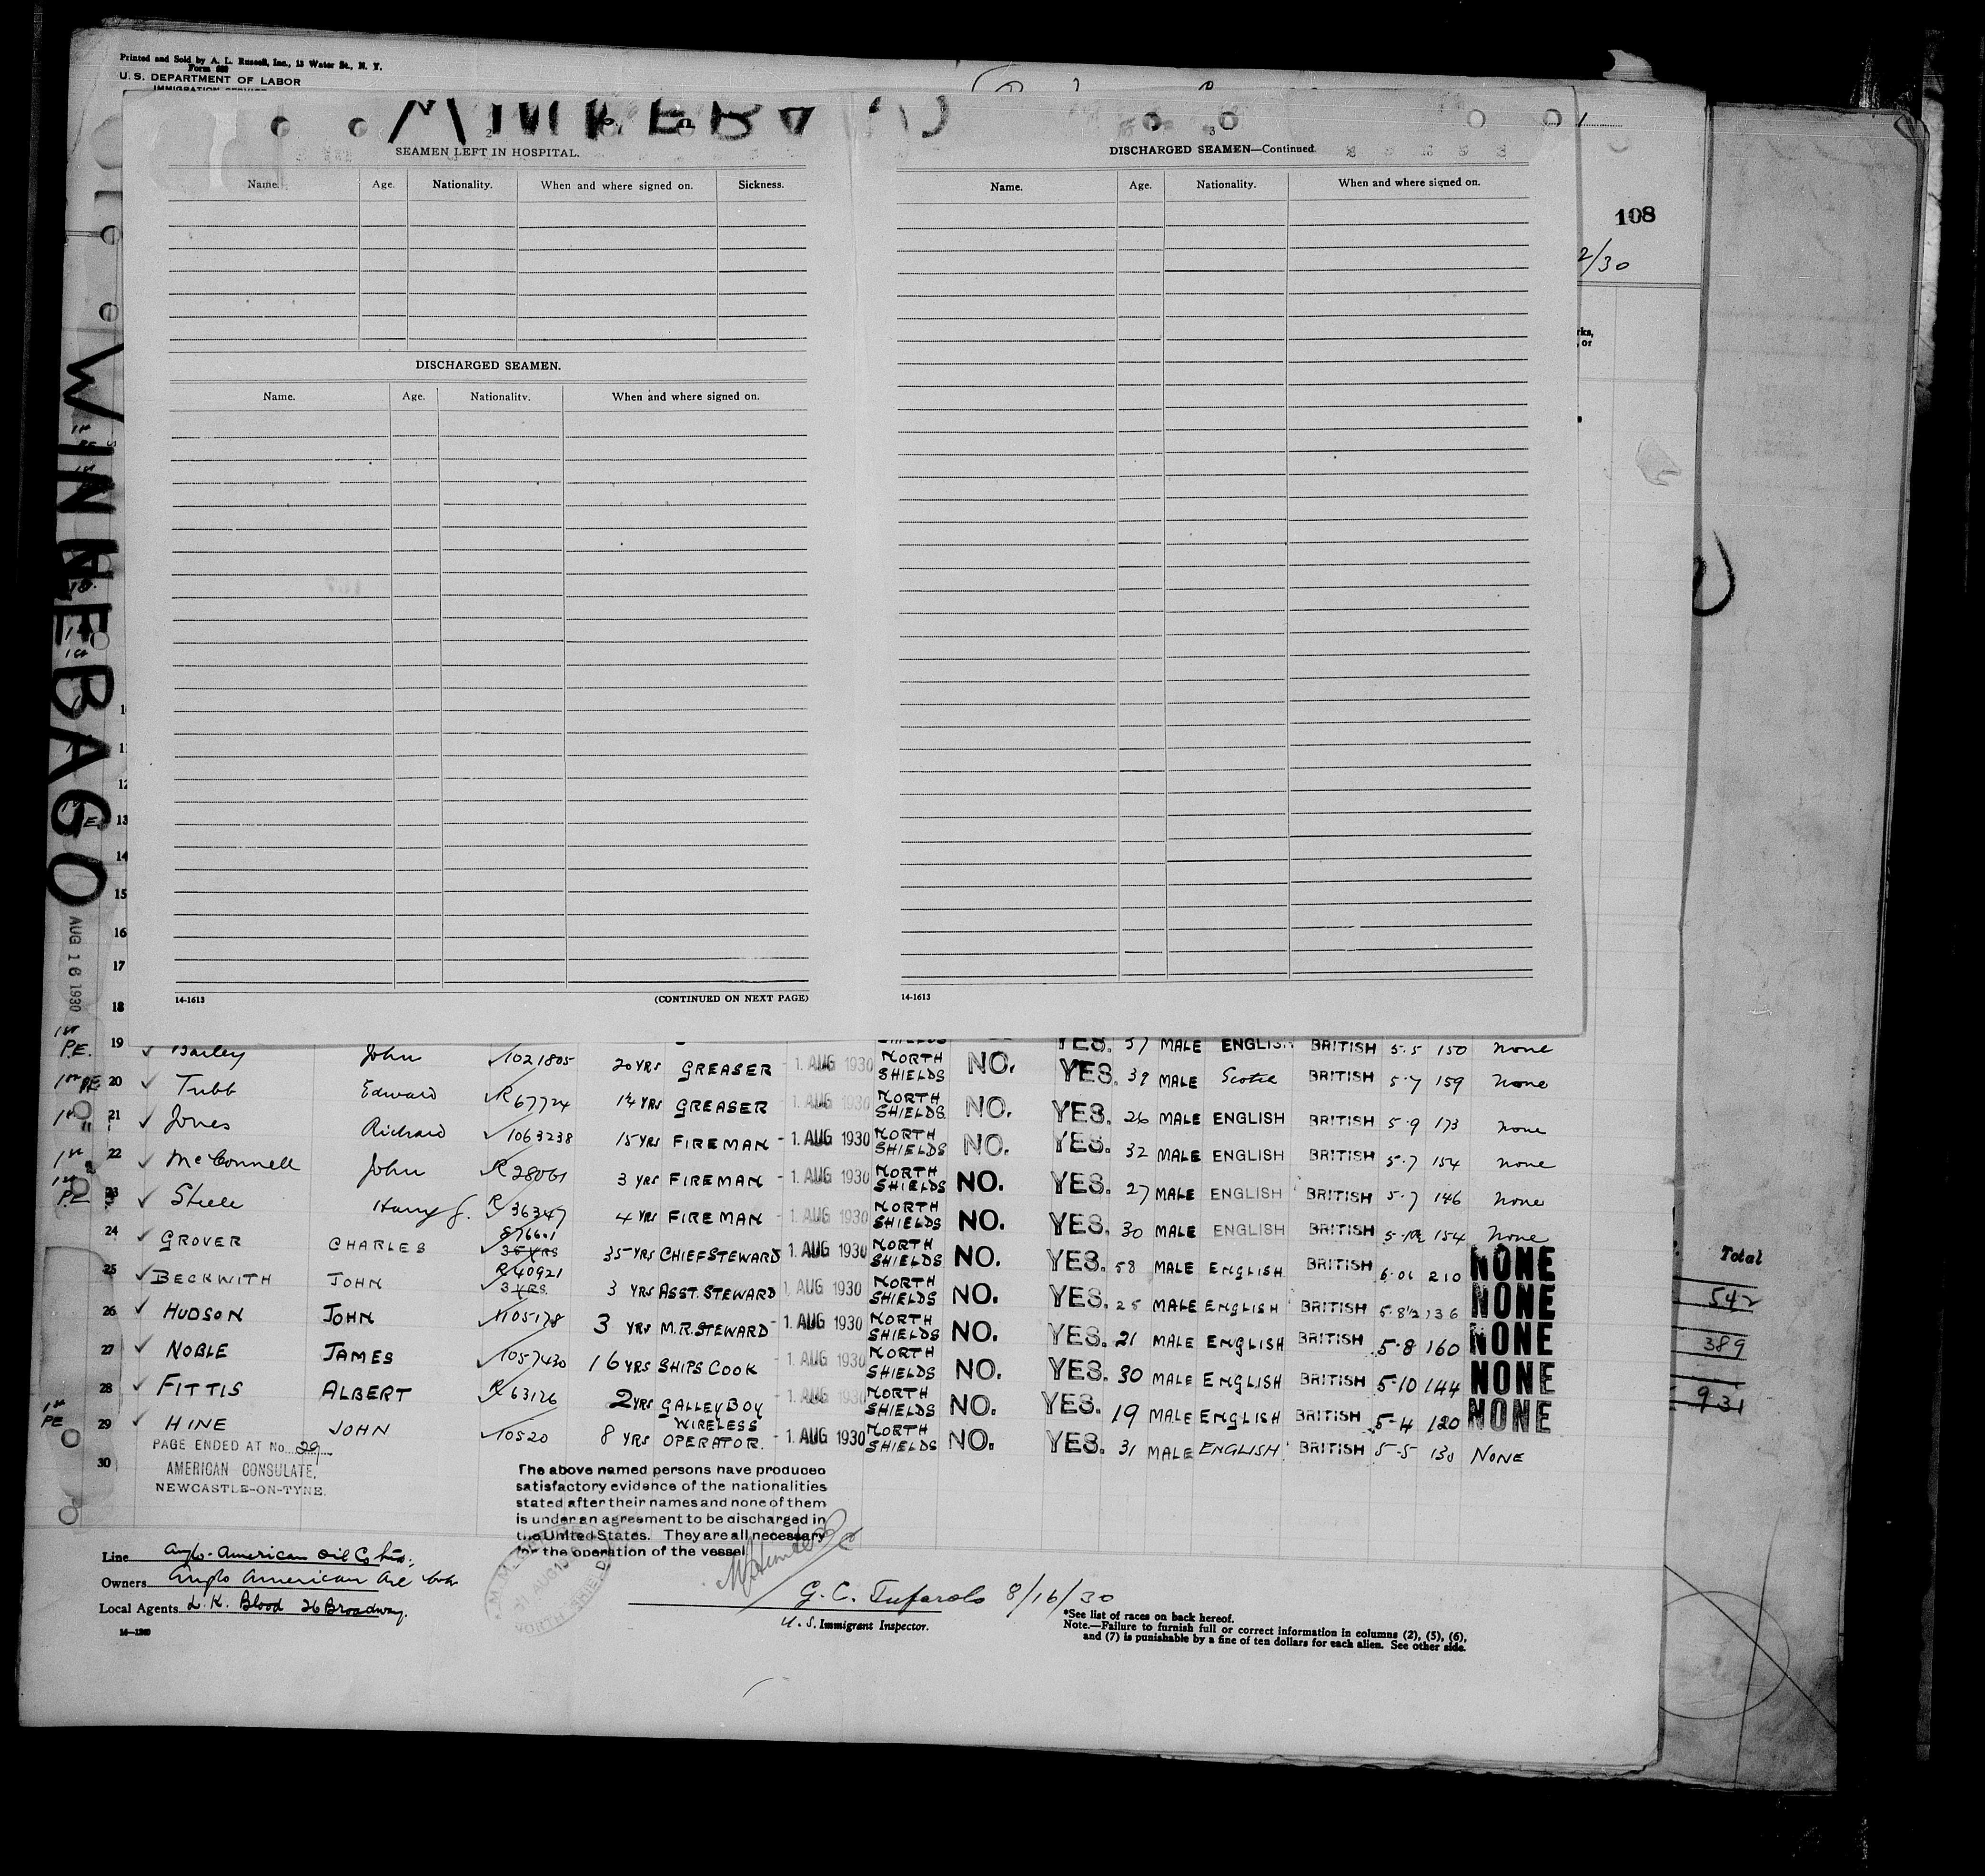 Printed and Sold by A. L. Russell, Inc., 13 Water St., N. Y.
Form 689
U. S. DEPARTMENT OF LABOR
IMMIGRATION SERVICE
WINNEBAGO
AUG 16 1930
108
2/30
rks,
, or
2
SEAMEN LEFT IN HOSPITAL.
Name. Age. Nationality. When and where signed on. Sickness.
DISCHARGED SEAMEN.
Name. Age. Nationality. When and where signed on.
14-1613 (CONTINUED ON NEXT PAGE)
3
DISCHARGED SEAMEN—Continued.
Name. Age. Nationality. When and where signed on.
14-1613
13
14
15
16
17
18
1st P.E. 19 ✓ Bailey John ✓1021805 20 YRS GREASER - 1. AUG 1930 NORTH SHIELDS NO. YES. 37 MALE ENGLISH BRITISH 5.5 150 None
1st PE 20 ✓ Tubb Edward ✓R67724 14 YRS GREASER - 1. AUG 1930 NORTH SHIELDS NO. YES. 39 MALE Scotch BRITISH 5.7 159 None
1st " 21 ✓ Jones Richard ✓1063238 15 YRS FIREMAN - 1. AUG 1930 NORTH SHIELDS NO. YES. 26 MALE ENGLISH BRITISH 5.9 173 None
1st 22 ✓ McConnell John ✓R28061 3 YRS FIREMAN - 1. AUG 1930 NORTH SHIELDS NO. YES. 32 MALE ENGLISH BRITISH 5.7 154 None
1st PE 23 ✓ Steele Harry J. ✓R36347 4 YRS FIREMAN - 1. AUG 1930 NORTH SHIELDS NO. YES. 27 MALE ENGLISH BRITISH 5.7 146 None
YES. 30 MALE ENGLISH BRITISH 154 None
24 ✓ GROVER CHARLES 35 YRS 35 YRS CHIEF STEWARD 1. AUG 1930 NORTH SHIELDS NO. YES. 58 MALE ENGLISH BRITISH 210 NONE
25 ✓ BECKWITH JOHN R40921 3 YRS. 3 YRS ASST. STEWARD 1. AUG 1930 NORTH SHIELDS NO. YES. 25 MALE ENGLISH BRITISH 5-8½ 136 NONE
26 ✓ HUDSON JOHN 3 YRS M.R. STEWARD - 1. AUG 1930 NORTH SHIELDS NO. YES. 21 MALE ENGLISH BRITISH 5-8 160 NONE
27 ✓ NOBLE JAMES ✓1057430 16 YRS SHIPS COOK - 1. AUG 1930 NORTH SHIELDS NO. YES. 30 MALE ENGLISH BRITISH 5-10 144 NONE
28 ✓ FITTIS ALBERT ✓R63126 2 YRS GALLEY BOY - 1. AUG 1930 NORTH SHIELDS NO. YES. 19 MALE ENGLISH BRITISH 5-4 120 NONE
1st PE 29 ✓ HINE JOHN ✓10520 8 YRS WIRELESS OPERATOR. - 1. AUG 1930 NORTH SHIELDS NO. YES. 31 MALE ENGLISH BRITISH 5-5 130 NONE
30
PAGE ENDED AT No. 29
AMERICAN CONSULATE,
NEWCASTLE-ON-TYNE.
The above named persons have produced
satisfactory evidence of the nationalities
stated after their names and none of them
is under an agreement to be discharged in
the United States. They are all necessary
for the operation of the vessel
Line Anglo-American Oil Co Ltd.
Owners Anglo American Oil
Local Agents L. K. Blood 26 Broadway.
14—1240
G. C. Tufarolo 8/16/30
U. S. Immigrant Inspector.
*See list of races on back hereof.
Note.—Failure to furnish full or correct information in columns (2), (5), (6),
and (7) is punishable by a fine of ten dollars for each alien. See other side.
Total
542
389
931